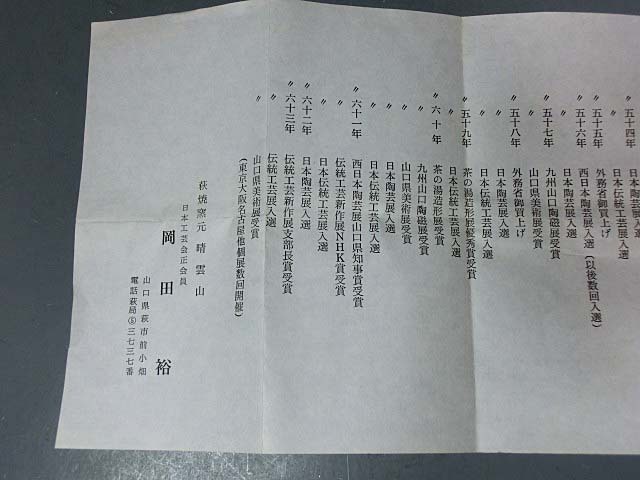 五十四年 日本陶芸展入選
〃 日本伝統工芸展入選
五十五年 外務省御買上げ
〃 五十六年 西日本陶芸展入選
〃 日本陶芸展入選(以後数回入選)
〃 五十七年 九州山口陶磁展受賞
〃 山口県美術展受賞
〃 五十八年 外務省御買上げ
〃 日本陶芸展入選
〃 日本伝統工芸展入選
〃 五十九年 茶の湯造形展優秀賞受賞
〃 日本伝統工芸展入選
〃 六十年 茶の湯造形展受賞
〃 九州山口陶磁展受賞
〃 山口県美術展受賞
〃 日本陶芸展入選
〃 日本伝統工芸展入選
〃 六十一年 西日本陶芸展山口県知事賞受賞
〃 伝統工芸新作展NHK賞受賞
〃 日本伝統工芸展入選
〃 六十二年 日本陶芸展入選
〃 六十三年 伝統工芸新作展支部長賞受賞
〃 伝統工芸展入選
〃 山口県美術展受賞
(東京大阪名古屋他個展数回開催)
萩焼窯元 晴雲山
日本工芸会正会員
岡田裕
山口県萩市前小畑
電話萩局⑤三七三七番